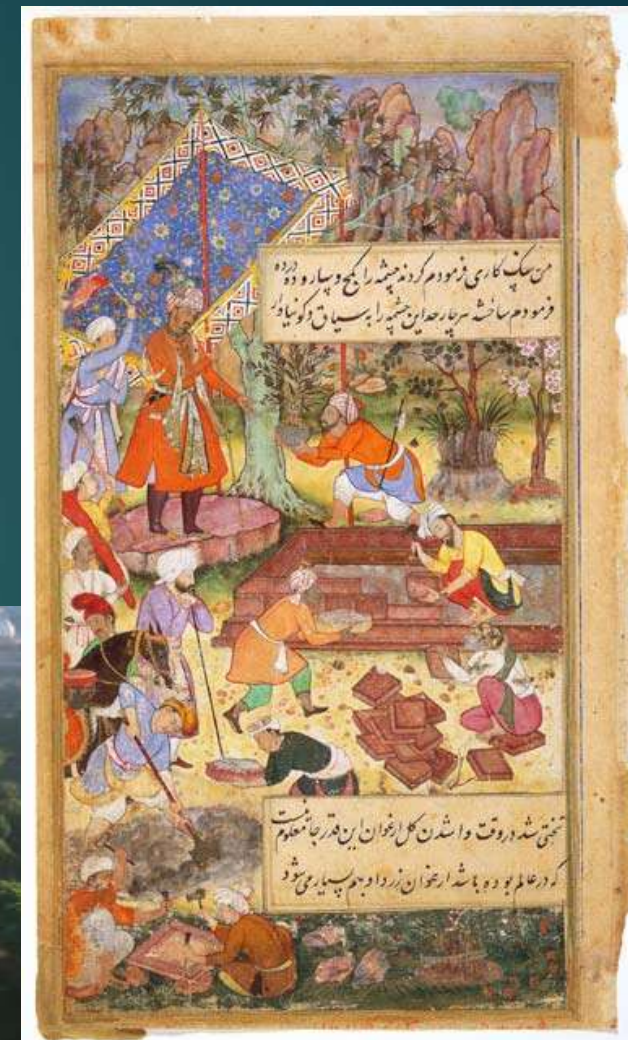 من سنک کاری فرمودم کردند چشمه را بکچ و سارو ده در ده
فرمودم ساخته هر چار حد این چشمه را به سیاق و کونیادار
تختی شد در وقت وا شدن کل ارغوان این قدر جا معلوم نیست
که در عالم بوده باشد ارغوان زرد او هم بسیار می شود